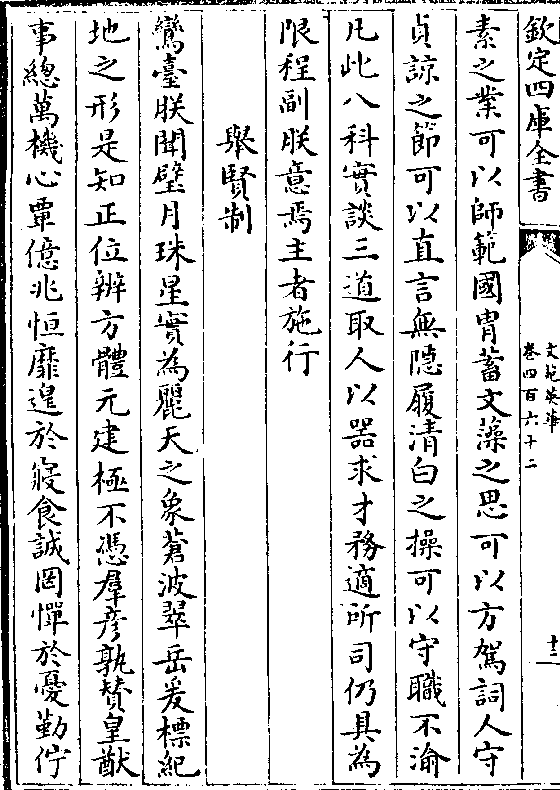 欽定四庫全書
文苑英華
卷四百六十二
十二
素之業可以師範國胄蓄文藻之思可以方駕詞人守
貞諒之節可以直言無隠履清白之操可以守職不渝
凡此八科實談三道取人以器求才務適所司仍具為
限程副朕意焉主者施行
舉賢制
鸞臺朕聞璧月珠星實為麗天之象蒼波翠岳爰標紀
地之形是知正位辨方體元建極不憑羣彦孰賛皇猷
事總萬機心覃億兆恒靡遑於寢食誠罔憚於憂勤佇